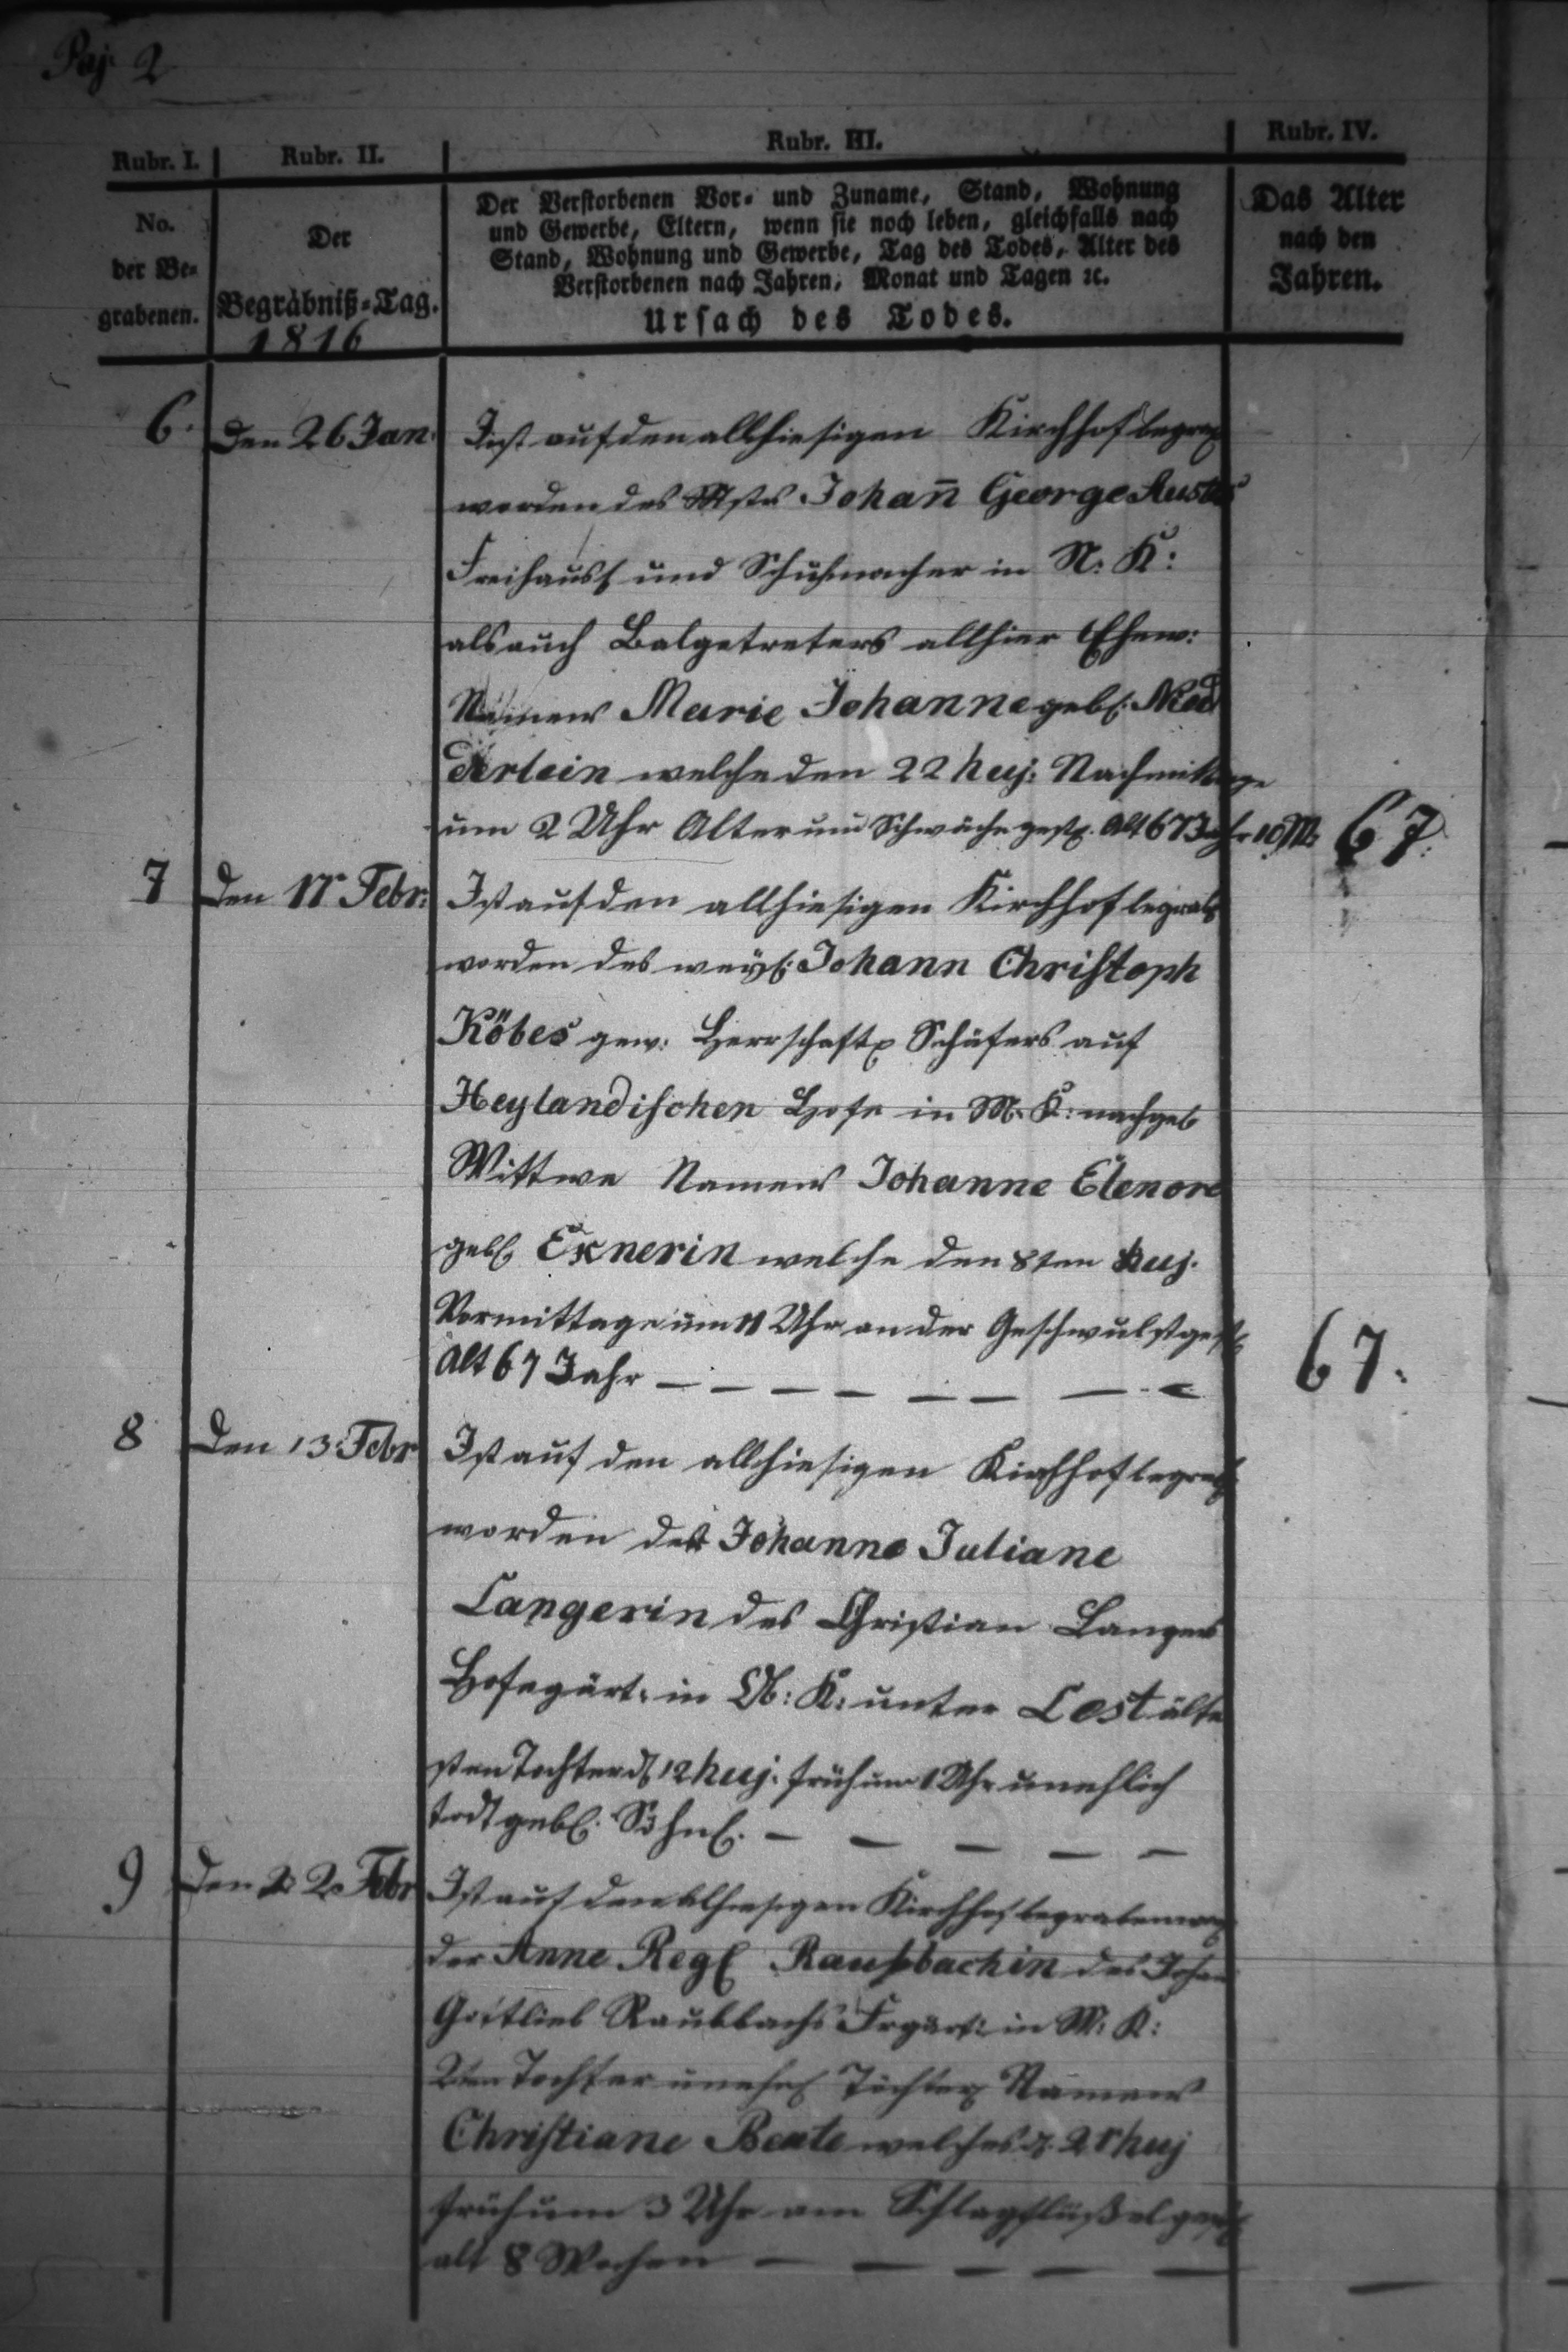 Paj. 2
Rubr. I.
Rubr. II.
Rubr. III.
Rubr. IV.
No.
der Be-
grabenen.
Der
Begräbniß-Tag.
1816
Der Verstorbenen Vor- und Zuname, Stand, Wohnung
und Gewerbe, Eltern, wenn sie noch leben, gleichfalls nach
Stand, Wohnung und Gewerbe, Tag des Todes, Alter des
Verstorbenen nach Jahren, Monat und Tagen ꝛc.
Ursach des Todes.
Das Alter
nach den
Jahren.
6.
Den 26 Jan.
Ist auf den allhiesigen Kirchhof begrab
worden des Mstr Johan̄ George
Freihäusl und Schuhmacher in N: K:
als auch Balgetreters allhier Ehew:
Namens Marie Johanne gebl: Nied
erlein welche den 22 huj: Nachmittage
um 2 Uhr Alter und Schwäche gest. Alt 67 Jahr 10 M:
67.
7
Den 11r Febr:
Ist auf den allhiesigen Kirchhof begrab
worden des weyl: Johann Christoph
Köbes gew. Herrschaftl Schäfers auf
Heylandischen Hofe in M. K: nachgel
Wittwe Namens Johanne Elenore
gebl Exnerin welche den 8ten huj.
Vormittage um 11 Uhr an der Geschwulst gest
Alt 67 Jahr — — — — — — — —
67.
8
Den 13. Febr
Ist auf den allhiesigen Kirchhof begrab
worden der Johanne Juliane
Langerin des Christian Langers
Hofegärt. in Ob: K: unter Lest älte
sten Tochter d 12 huj. früh um 1 Uhr unehlich
todtgebl. Söhnl. — — — — —
9
Den 22 Febr
Ist auf den allhiesigen Kirchhof begraben
der Anne Regl Raußbachin des Johan
Gottlieb Raußbachs Frgärt: in M: K:
2ten Tochter unehel Töchterl Namens
Christiane Beate welches d. 21 huj
früh um 3 Uhr am Schlagflüßel gest
alt 8 Wochen — — — — —
—